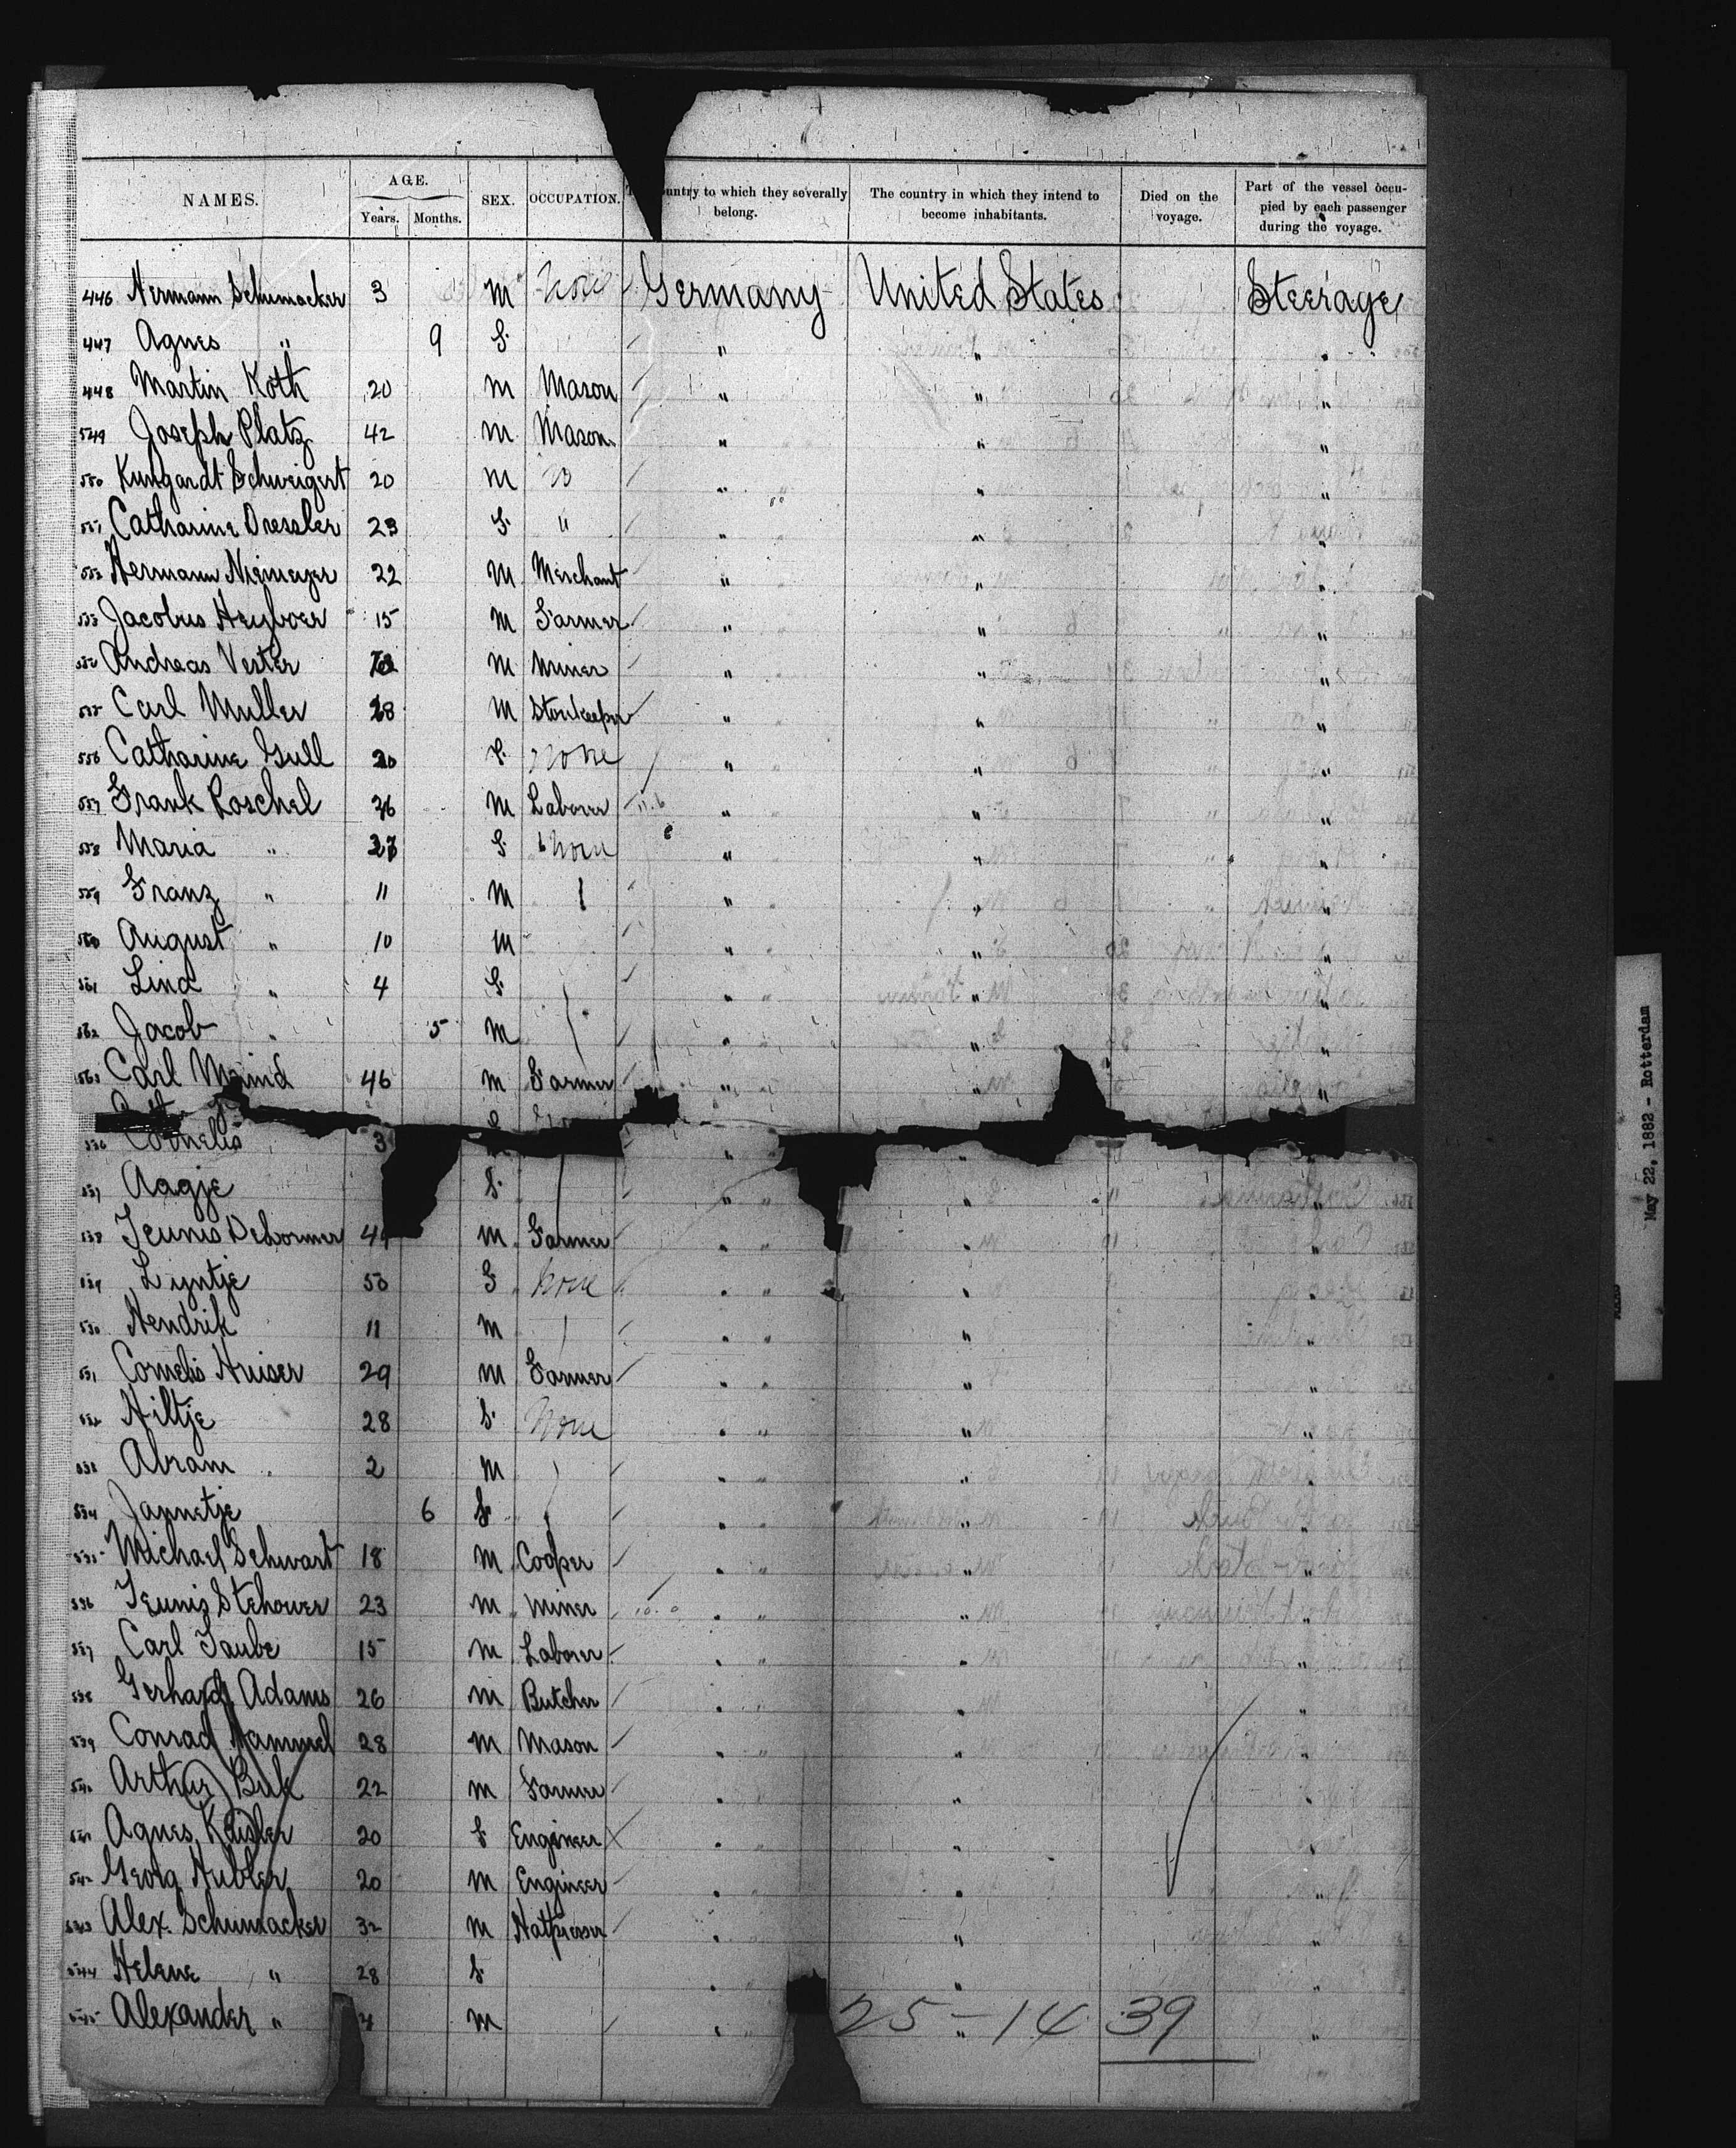 NAMES. AGE. Years. Months. SEX. OCCUPATION. country to which they severally belong. The country in which they intend to become inhabitants. Died on the voyage. Part of the vessel occupied by each passenger during the voyage.
446 Hermann Schumacker 3 M None Germany United States Steerage
447 Agnes " 9 F " " "
448 Martin Koth 20 M Mason " " "
549 Joseph Platz 42 M Mason " " "
550 Kungardt Schweigert 20 M " " "
551 Catharine Dressler 23 F " " " "
552 Hermann Niemeyer 22 M Merchant " " "
553 Jacobus Heyboer 15 M Farmer " " "
Andreas Vester M Miner " " "
555 Carl Muller 28 M Storekeeper " " "
556 Catharine Gull 20 F None " " "
557 Frank Roschel 36 M Laborer " " "
558 Maria " 27 F None " " "
559 Franz " 11 M " " "
560 August " 10 M " " "
561 Lina " 4 F " " "
562 Jacob " 5 M " " "
563 Carl 46 M Farmer " " "
Cornelis 3 " " "
Aagje F " " "
Teunis M Farmer " " "
Lyntje 50 F None " " "
530 Hendrik 11 M " " "
531 Cornelis Huiser 29 M Farmer " " "
532 Hiltje 28 F None " " "
533 Abram 2 M " " "
534 Jannetje 6 F " " "
535 Michael Schwart 18 M Cooper " " "
536 Teunis Stehower 23 M Miner " " "
537 Carl Taube 15 M Laborer " " "
538 Gerhard Adams 26 M Butcher " " "
539 Conrad Hammel 28 M Mason " " "
540 Arthur Buk 22 M Farmer " " "
541 Agnes Kaisler 20 F Engineer " " "
542 Georg Hubler 20 M Engineer " " "
543 Alex. Schumacker 32 M Hatpresser " " "
544 Helene " 28 F " " "
545 Alexander " 4 M " " "
25 - 14 39
May 22, 1882 - Rotterdam